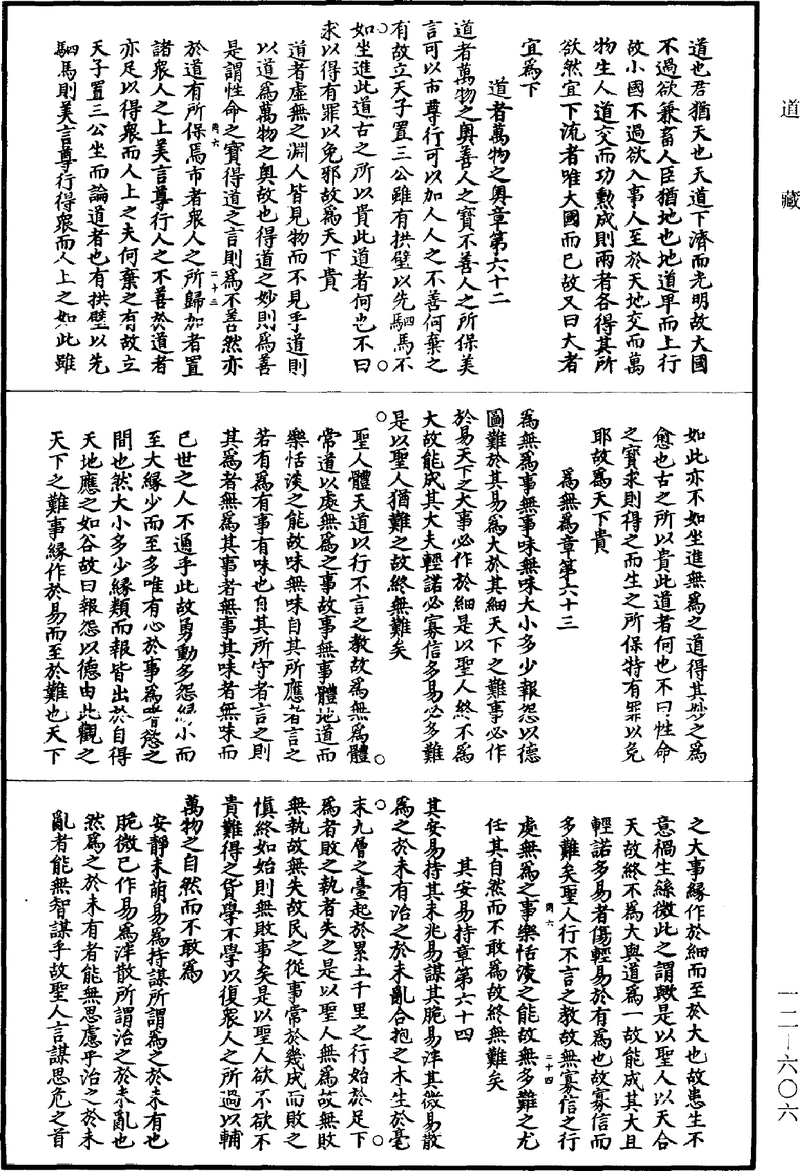 道藏
道也君猶天也天道下濟而光明故大國
不過欲兼畜人臣猶地也地道卑而上行
故小國不過欲入事人至於天地交而萬
物生人道交而功勲成則兩者各得其所
欲然宜下流者唯大國而已故又曰大者
宜爲下
道者萬物之奧章第六十二
道者萬物之奧善人之寳不善人之所保美
言可以市尊行可以加人人之不善何棄之
有故立天子置三公雖有拱璧以先駟馬不
如坐進此道古之所以貴此道者何也不曰
求以得有罪以免邪故爲天下貴
道者虛無之淵人皆見物而不見乎道則
以道爲萬物之奧故也得道之妙則爲善
是謂性命之寳得道之言則爲不善然亦
於道有所保焉市者衆人之所歸加者置
諸衆人之上美言尊行人之不善於道者
亦足以得衆而人上之夫何棄之有故立
天子置三公坐而論道者也有拱璧以先
駟馬則美言尊行得衆而人上之如此雖
二十三
如此亦不如坐進無爲之道得其妙之爲
愈也古之所以貴此道者何也不曰性命
之寳求則得之而生之所保特有罪以免
耶故爲天下貴
爲無爲章第六十三
爲無爲事無事味無味大小多少報怨以德
圖難於其易爲大於其細天下之難事必作
於易天下之大事必作於細是以聖人終不爲
大故能成其大夫輕諾必寡信多易必多難
是以聖人猶難之故終無難矣
聖人體天道以行不言之教故爲無爲體
常道以處無爲之事故事無事體地道而
樂恬淡之能故味無味自其所應者言之
若有爲有事有味也自其所守者言之則
其爲者無爲其事者無事其味者無味而
已世之人不通乎此故勇動多怨緣小而
至大緣少而至多唯有心於事爲嗜慾之
間也然大小多少緣類而報皆出於自得
天地應之如谷故曰報怨以德由此觀之
天下之難事緣作於易而至於難也天下
之大事緣作於細而至於大也故患生不
意禍生絲微此之謂歟是以聖人以天合
天故終不爲大與道爲一故能成其大且
輕諾多易者傷輕易於有爲也故寡信而
多難矣聖人行不言之教故無寡信之行
處無爲之事樂恬淡之能故無多難之尤
任其自然而不敢爲故終無難矣
二十四
其安易持章第六十四
其安易持其未兆易謀其脆易泮其微易散
爲之於未有治之於未亂合抱之木生於毫
末九層之臺起於累土千里之行始於足下
爲者敗之執者失之是以聖人無爲故無敗
無執故無失故民之從事常於幾成而敗之
慎終如始則無敗事矣是以聖人欲不欲不
貴難得之貨學不學以復衆人之所過以輔
萬物之自然而不敢爲
安靜未萌易爲持謀所謂爲之於未有也
脆微已作易爲泮散所謂治之於未亂也
然爲之於未有者能無思慮乎治之於未
亂者能無智謀乎故聖人言謀思危之首
一二—六〇六